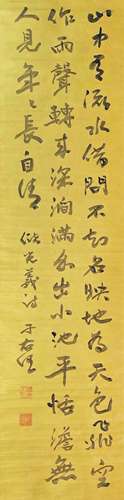 山中有流水借問不知名映地為天色飛空
作雨聲轉來深澗滿分出小池平恬澹無
人見年年長自清 儲光羲詩 于右任